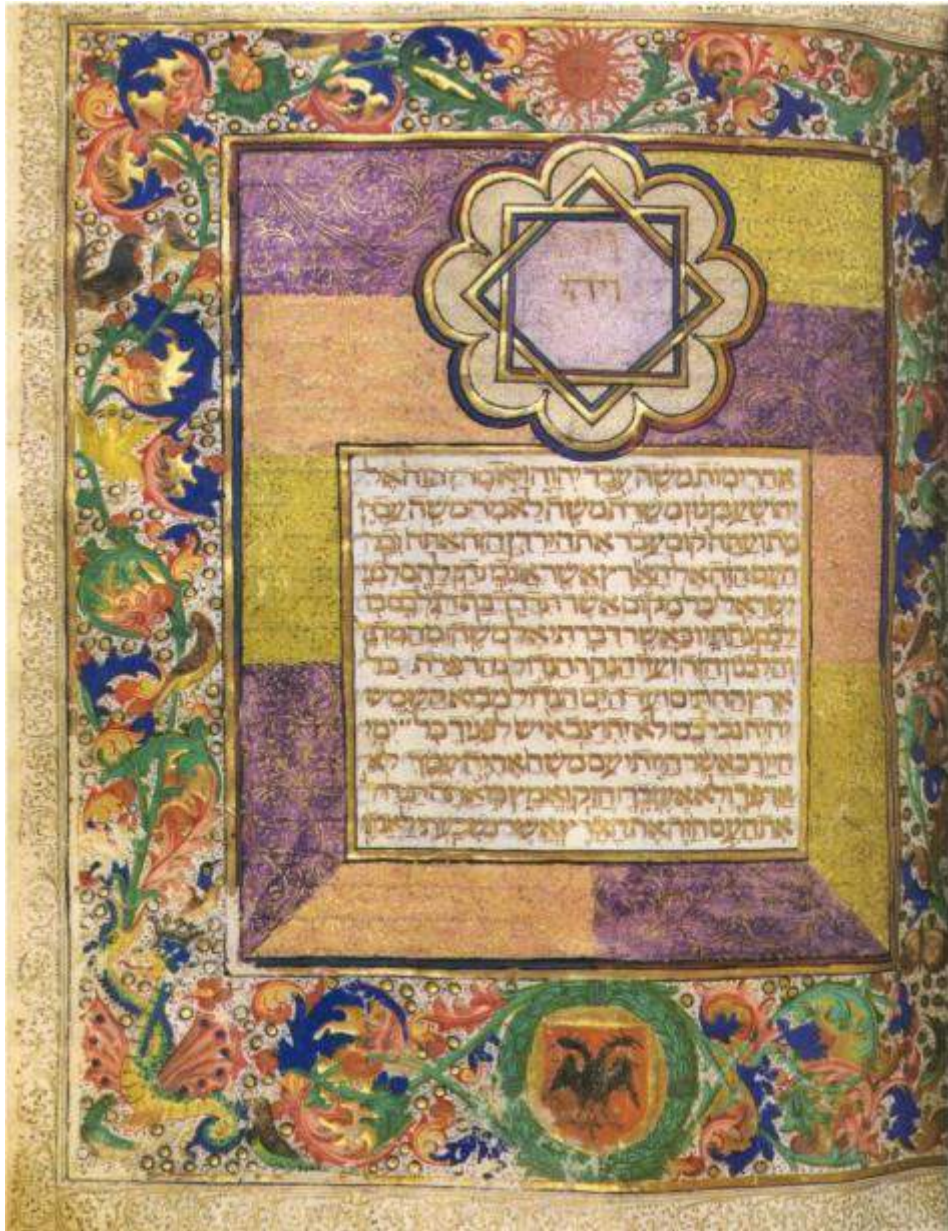 ויהי
אחרי מות משה עבד יהוה ויאמר יהוה אל
יהושע בן נון משרת משה לאמר משה עבדי
מת ועתה קום עבר את הירדן הזה אתה וכל
העם הזה אל הארץ אשר אנכי נתן להם לבני
ישראל כל מקום אשר תדרך כף רגלכם
לכם נתתיו כאשר דברתי אל משה
והלבנון הזה ועד הנהר הגדול נהר פרת כל
ארץ החתים ועד הים הגדול מבוא השמש
יהיה גבולכם לא יתיצב איש לפניך כל ימי
חייך כאשר הייתי עם משה אהיה עמך לא
ארפך ולא אעזבך חזק ואמץ כי אתה
את העם הזה את הארץ אשר נשבעתי